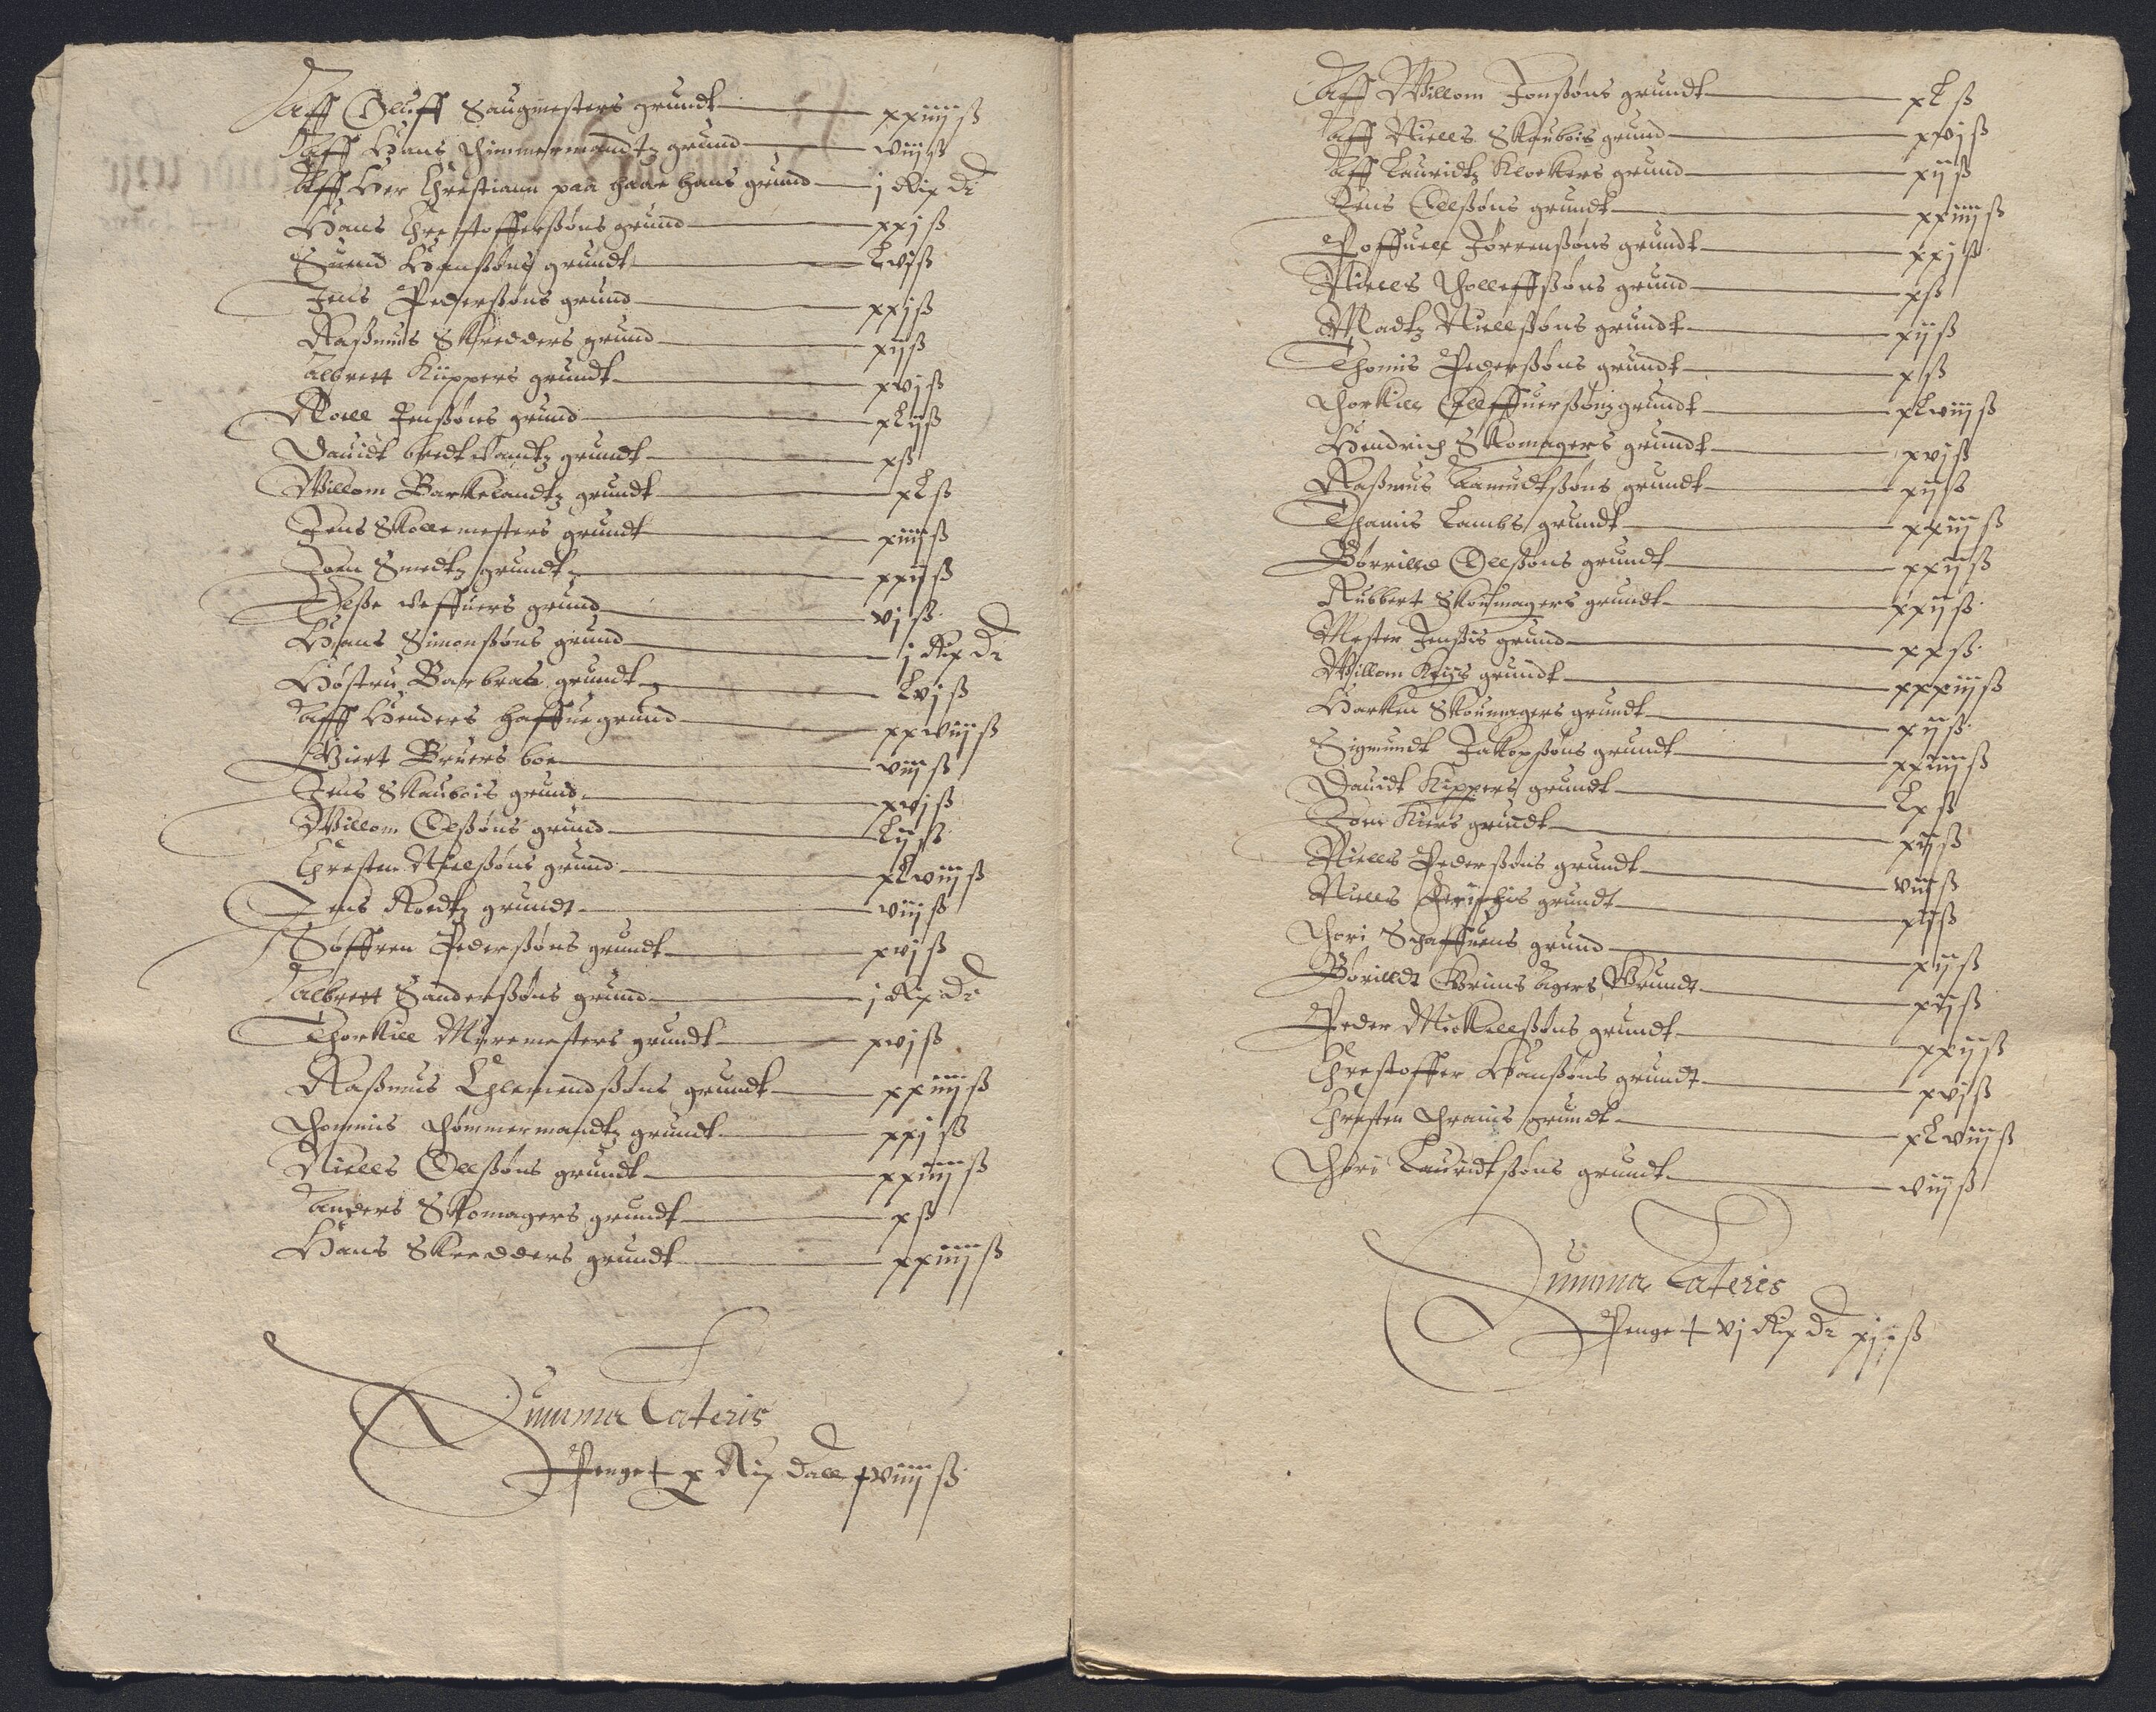 Aff Oluff Saugmesters grundt xxiiij ß
Aff Hans Thimmermandtz grund viij ß
Aff Her Chrestiann paa haar hans grund j Rix Dr
Hans Chrestofferßøns grund xxj ß
Suend Hanßøns grundt Lvj ß
Jens Pederßøns grund xxj ß
Raßmus Skredders grund xij ß
Albrett Küppers grundt xvj ß
Roell Jenßøns grund xLij ß
Dauidt grundt x ß
Willom Barkelandtz grundt xL ß
Jens Skollemesters grundt xiiij ß
Joen Smedtz grundt xxij ß
Elße Veffuers grund vj ß
Hans Simonßøns grund j Rix Dr
Høstru Barbras grundt Lvj ß
Aff Henders haffue grund xxviij ß
Giert Bruers boe viij ß
Jens Skaubois grund xvj ß
Willom Olßøns grund Lij ß
Chresten Nielßøns grund xLviij ß
Jens Roedtz grundt viij ß
Søffren Pederßøns grundt xvj ß
Albrett Sanderßøns grund j Rix Dr
Thorkill Müremesters grundt xvj ß
Raßmus Chlemendßøns grundt xxiiij ß
Thommis Thømmermandtz grundt xxj ß
Niells Ollßøns grundt xxiiij ß
Anders Skomagers grundt x ß
Hans Skredders grundt xxiiij ß
Summa Lateris
Penge x Rix Dall xviiij ß
Aff Willom Jonßøns grundt xL ß
Aff Niells Skaubois grund xvj ß
Aff Lauridtz Klockers grund xij ß
Jens Ollßøns grundt xxiiij ß
Poffuell Jørrenßøns grundt xxj ß
Niells Tholleffßøns grund x ß
Madtz Niellßøns grundt xij ß
Thomis Pederßøns grundt x ß
Thorkill Elleffuerßøns grundt xLviij ß
Hendrich Skomagers grundt xvj ß
Raßmus Aamudtßøns grundt xij ß
Thamis Lambs grundt xxiij ß
Børrilld Ollßøns grundt xxij ß
Rubbert Skoumagers grundt xxij ß
Mester Jenßis grund xx ß
Willom Kriis grundt xxxiij ß
Harken Skoumagers grundt xij ß
Sigmundt Jakopßøns grundt xxiiij ß
Dauidt Kippers grundt Lx ß
Joen Kiers grundt xij ß
Niells Pederßøns grundt viij ß
Niells grundt xij ß
Thori Schaffuens grund xij ß
Børilldt Grimsagers Grundt xij ß
Peder Mickellßøns grundt xxij ß
Chrestoffer Hanßøns grundt xvj ß
Chresten Thranis grundt xLviij ß
Thori Lauridtßøns grundt viij ß
Summa Lateris
Penge vj Rix Dr xj ß